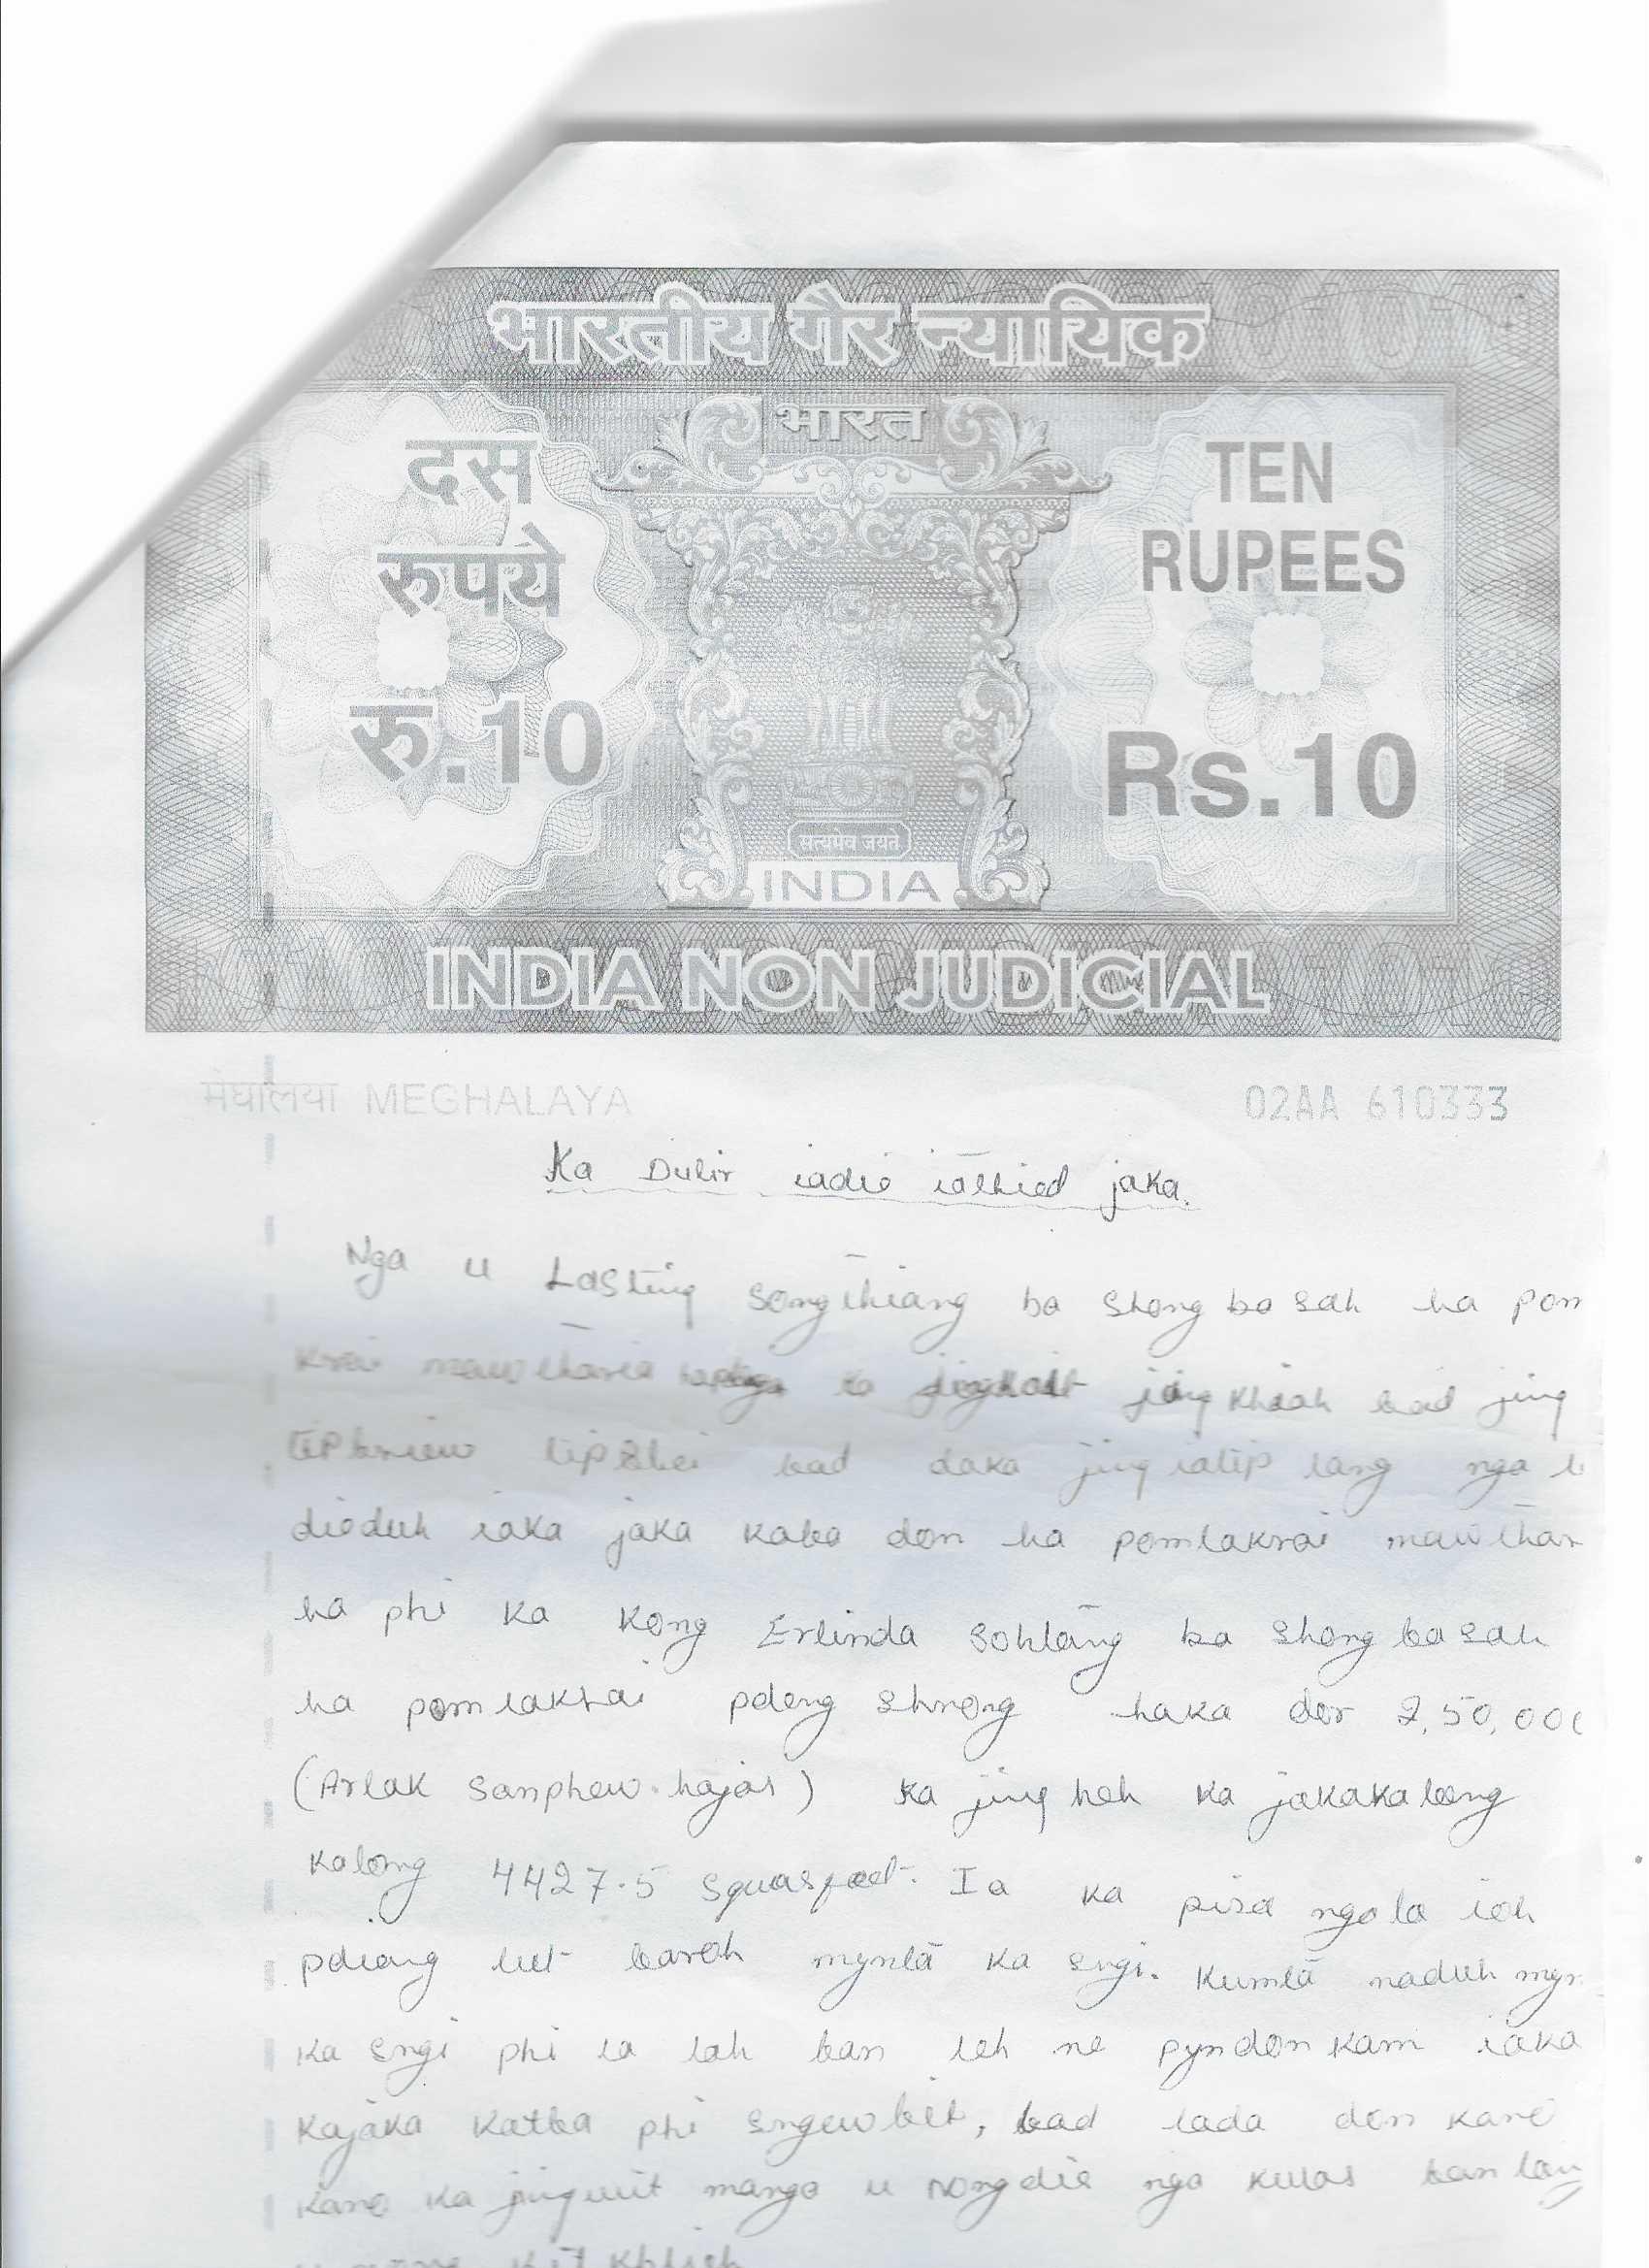 भारतीय गैर न्यायिक
भारत
दस
रुपये
रु.10
TEN
RUPEES
Rs.10
सत्यमेव जयते
INDIA
INDIA NON JUDICIAL
मेघालया MEGHALAYA
02AA 610333
Ka Dulir iadie iathied jaka.
Nga u Lasting Songthiang ba shong ba sah ha pom
krai jing khiah bad jing
tipbriew tipblei bad daka jing iatip lang nga
dieduh iaka jaka kaba don ha pomlakrai mawthar
ha phi ka Kong Erlinda Sohlang ba shong ba sah
ha pomlakrai pdeng shnong haka dor 2,50,000
(Arlak sanphew hajar) ka jing heh ka jakakaleng
kalong 4427.5 squarfeet. Ia ka pisa nga la ioh
pdiang lut baroh myntā ka sngi. Kumtā naduh myn
ka sngi phi la lah ban leh ne pyndonkam iaka
kajaka katba phi sngewbit, bad lada don kano
kano ka jingwit manga u nongdie nga kular ban
kit khlieh